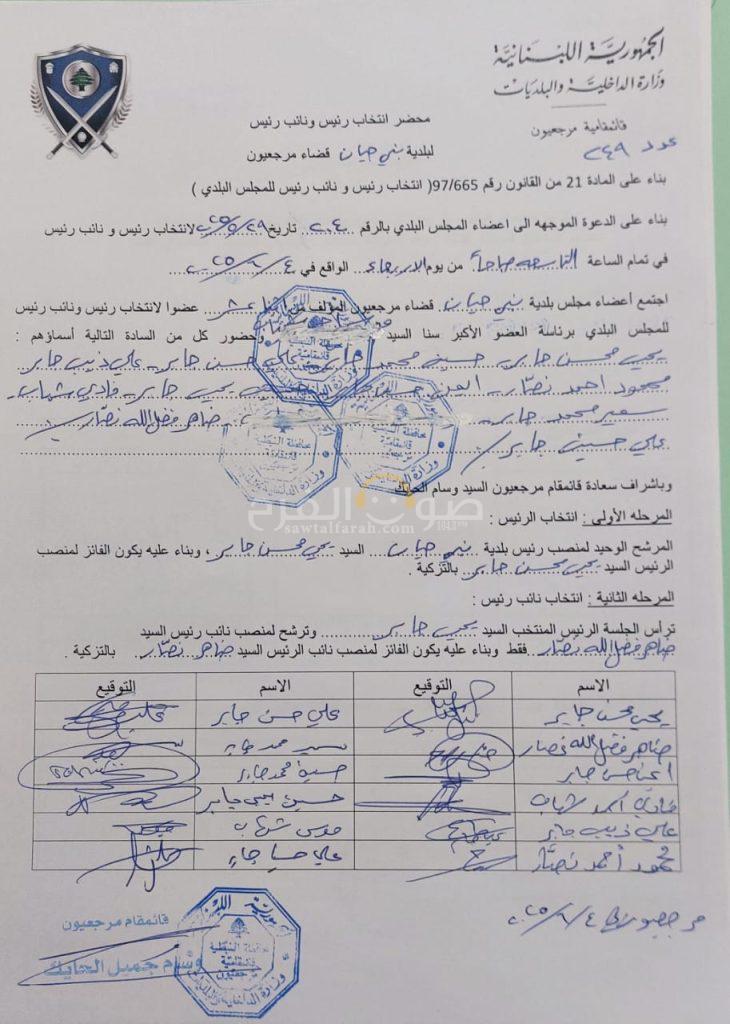 الجمهورية اللبنانية
وزارة الداخلية والبلديات
قائمقامية مرجعيون
عدد ٢٤٩
محضر انتخاب رئيس ونائب رئيس
لبلدية بني حيان قضاء مرجعيون
بناء على المادة 21 من القانون رقم 97/665( انتخاب رئيس و نائب رئيس للمجلس البلدي )
بناء على الدعوة الموجهه الى اعضاء المجلس البلدي بالرقم ٢٠٤ تاريخ ٢٠٢٥/٥/٢٩ لانتخاب رئيس و نائب رئيس
في تمام الساعة التاسعة صباحاً من يوم الاربعاء الواقع في ٢٠٢٥/٦/٤
اجتمع أعضاء مجلس بلدية بني حيان قضاء مرجعيون المؤلف من عشر عضوا لانتخاب رئيس ونائب رئيس
للمجلس البلدي برئاسة العضو الأكبر سنا السيد وحضور كل من السادة التالية أسماؤهم :
يحيى محسن جابر - حسين محمد جابر - علي حسن جابر - علي ذيب جابر
محمود احمد نصار - ايمن يحيى جابر - فادي شهاب -
سمير محمد جابر - ضاهر فضل الله نصار
علي حسين جابر
وباشراف سعادة قائمقام مرجعيون السيد وسام الحايك
صوت الفرح
sawtalfarah.com
المرحله الأولى : انتخاب الرئيس:
المرشح الوحيد لمنصب رئيس بلدية بني حيان السيد يحيى محسن جابر ، وبناء عليه يكون الفائز لمنصب
الرئيس السيد يحيى محسن جابر بالتزكية .
المرحلة الثانية : انتخاب نائب رئيس :
ترأس الجلسة الرئيس المنتخب السيد يحيى جابر وترشح لمنصب نائب رئيس السيد
ضاهر فضل الله نصار فقط وبناء عليه يكون الفائز لمنصب نائب الرئيس السيد ضاهر نصار بالتزكية .
الاسم التوقيع الاسم التوقيع
يحيى محسن جابر علي حسن جابر
ضاهر فضل الله نصار سمير محمد جابر
ايمن حسن جابر حسين محمد جابر
فادي احمد شهاب حسين يحيى جابر
علي ذيب جابر موسى شهاب
محمود أحمد نصار علي حسين جابر
مرجعيون في ٢٠٢٥/٦/٤
قائمقام مرجعيون
وسام جميل الحايك
الجمهورية اللبنانية
محافظة النبطية
قائمقامية
مرجعيون
وزارة الداخلية والبلديات